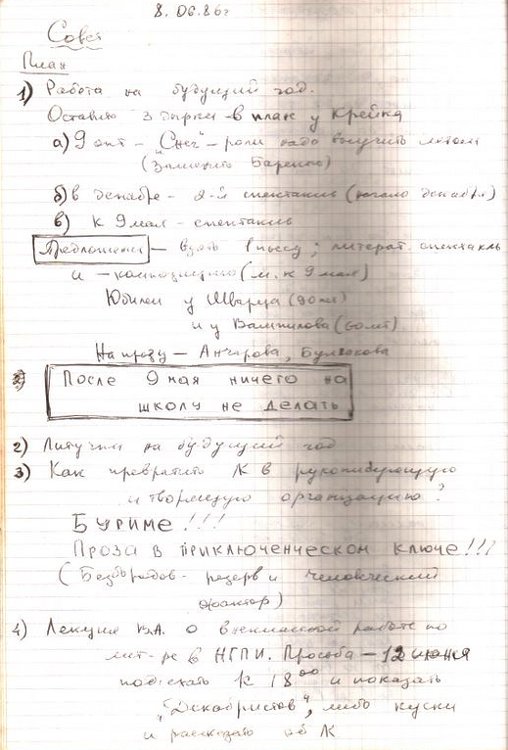 8. 06.86г
Совет
План
1) Работа на будущий год.
Оставлю 3 дырки - в план у Крейна
а) 9 окт - "Снег" - роли надо выучить летом
(Заменить Баренко)
б) в декабре - 2-й спектакль (начало декабря)
в) К 9 мая - спектакль
Предложения - взять 1 пьесу; литерат. спектакль
и - композицию (м. к 9 мая)
Юбилеи у Шварца (90 лет)
и у Вампилова (50 лет)
На прозу - Анчарова, Булгакова
После 9 мая ничего на
школу не делать
2) Летучки на будущий год
3) Как превратить К в
и творящую организацию?
Буриме!!!
Проза в приключенческом ключе!!!
(Безбородов - резерв и человеческий
фактор)
4) Лекция о внеклассной работе по
лит-ре в НГПИ. Просьба - 12 июня
подъехать к 18⁰⁰ и показать
"Декабристов", либо куски
и рассказать об К